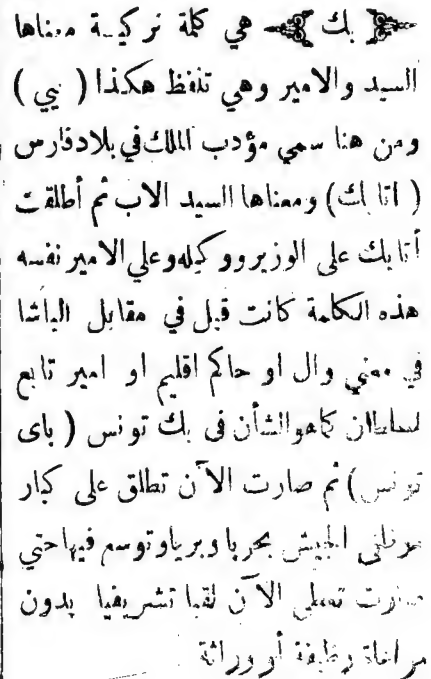 بك هي كلمة تركية معناها
السيد والامير وهي تلفظ هكذا ( بي )
ومن هنا سمي مؤدب الملك في بلاد فارس
( اتا بك ) ومعناها السيد الاب ثم أطلقت
أتا بك على الوزير ووكيله وعلي الامير نفسه
هذه الكلمة كانت قبل في مقابل الباشا
في معني وال او حاكم اقليم او امير تابع
لسلطان كما هو الشأن فى بك تونس ( باى
تونس ) ثم صارت الآن تطلق على كبار
موظفى الجيش بحريا وبريا وتوسع فيها حتي
صارت تعطى الآن لقبا تشريفيا بدون
مراعاة وظيفة أو وراثة